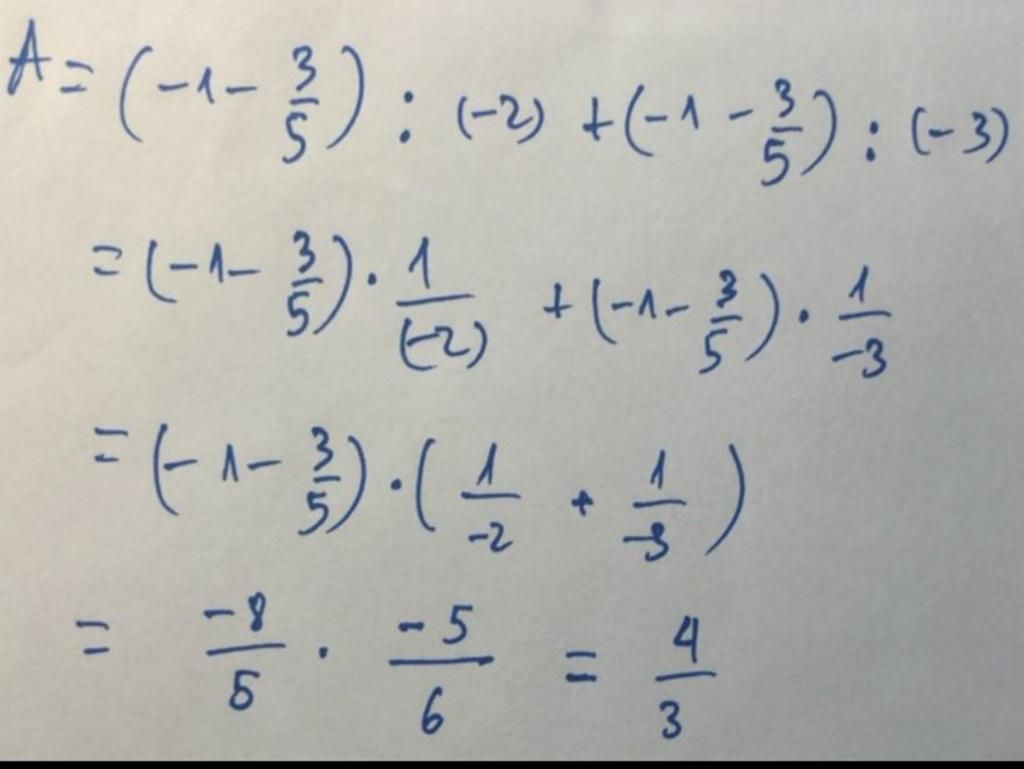 A = (-1 - 3/5) : (-2) + (-1 - 3/5) : (-3)
= (-1 - 3/5) · 1/(-2) + (-1 - 3/5) · 1/-3
= (-1 - 3/5) · (1/-2 + 1/-3)
= -8/5 · -5/6 = 4/3